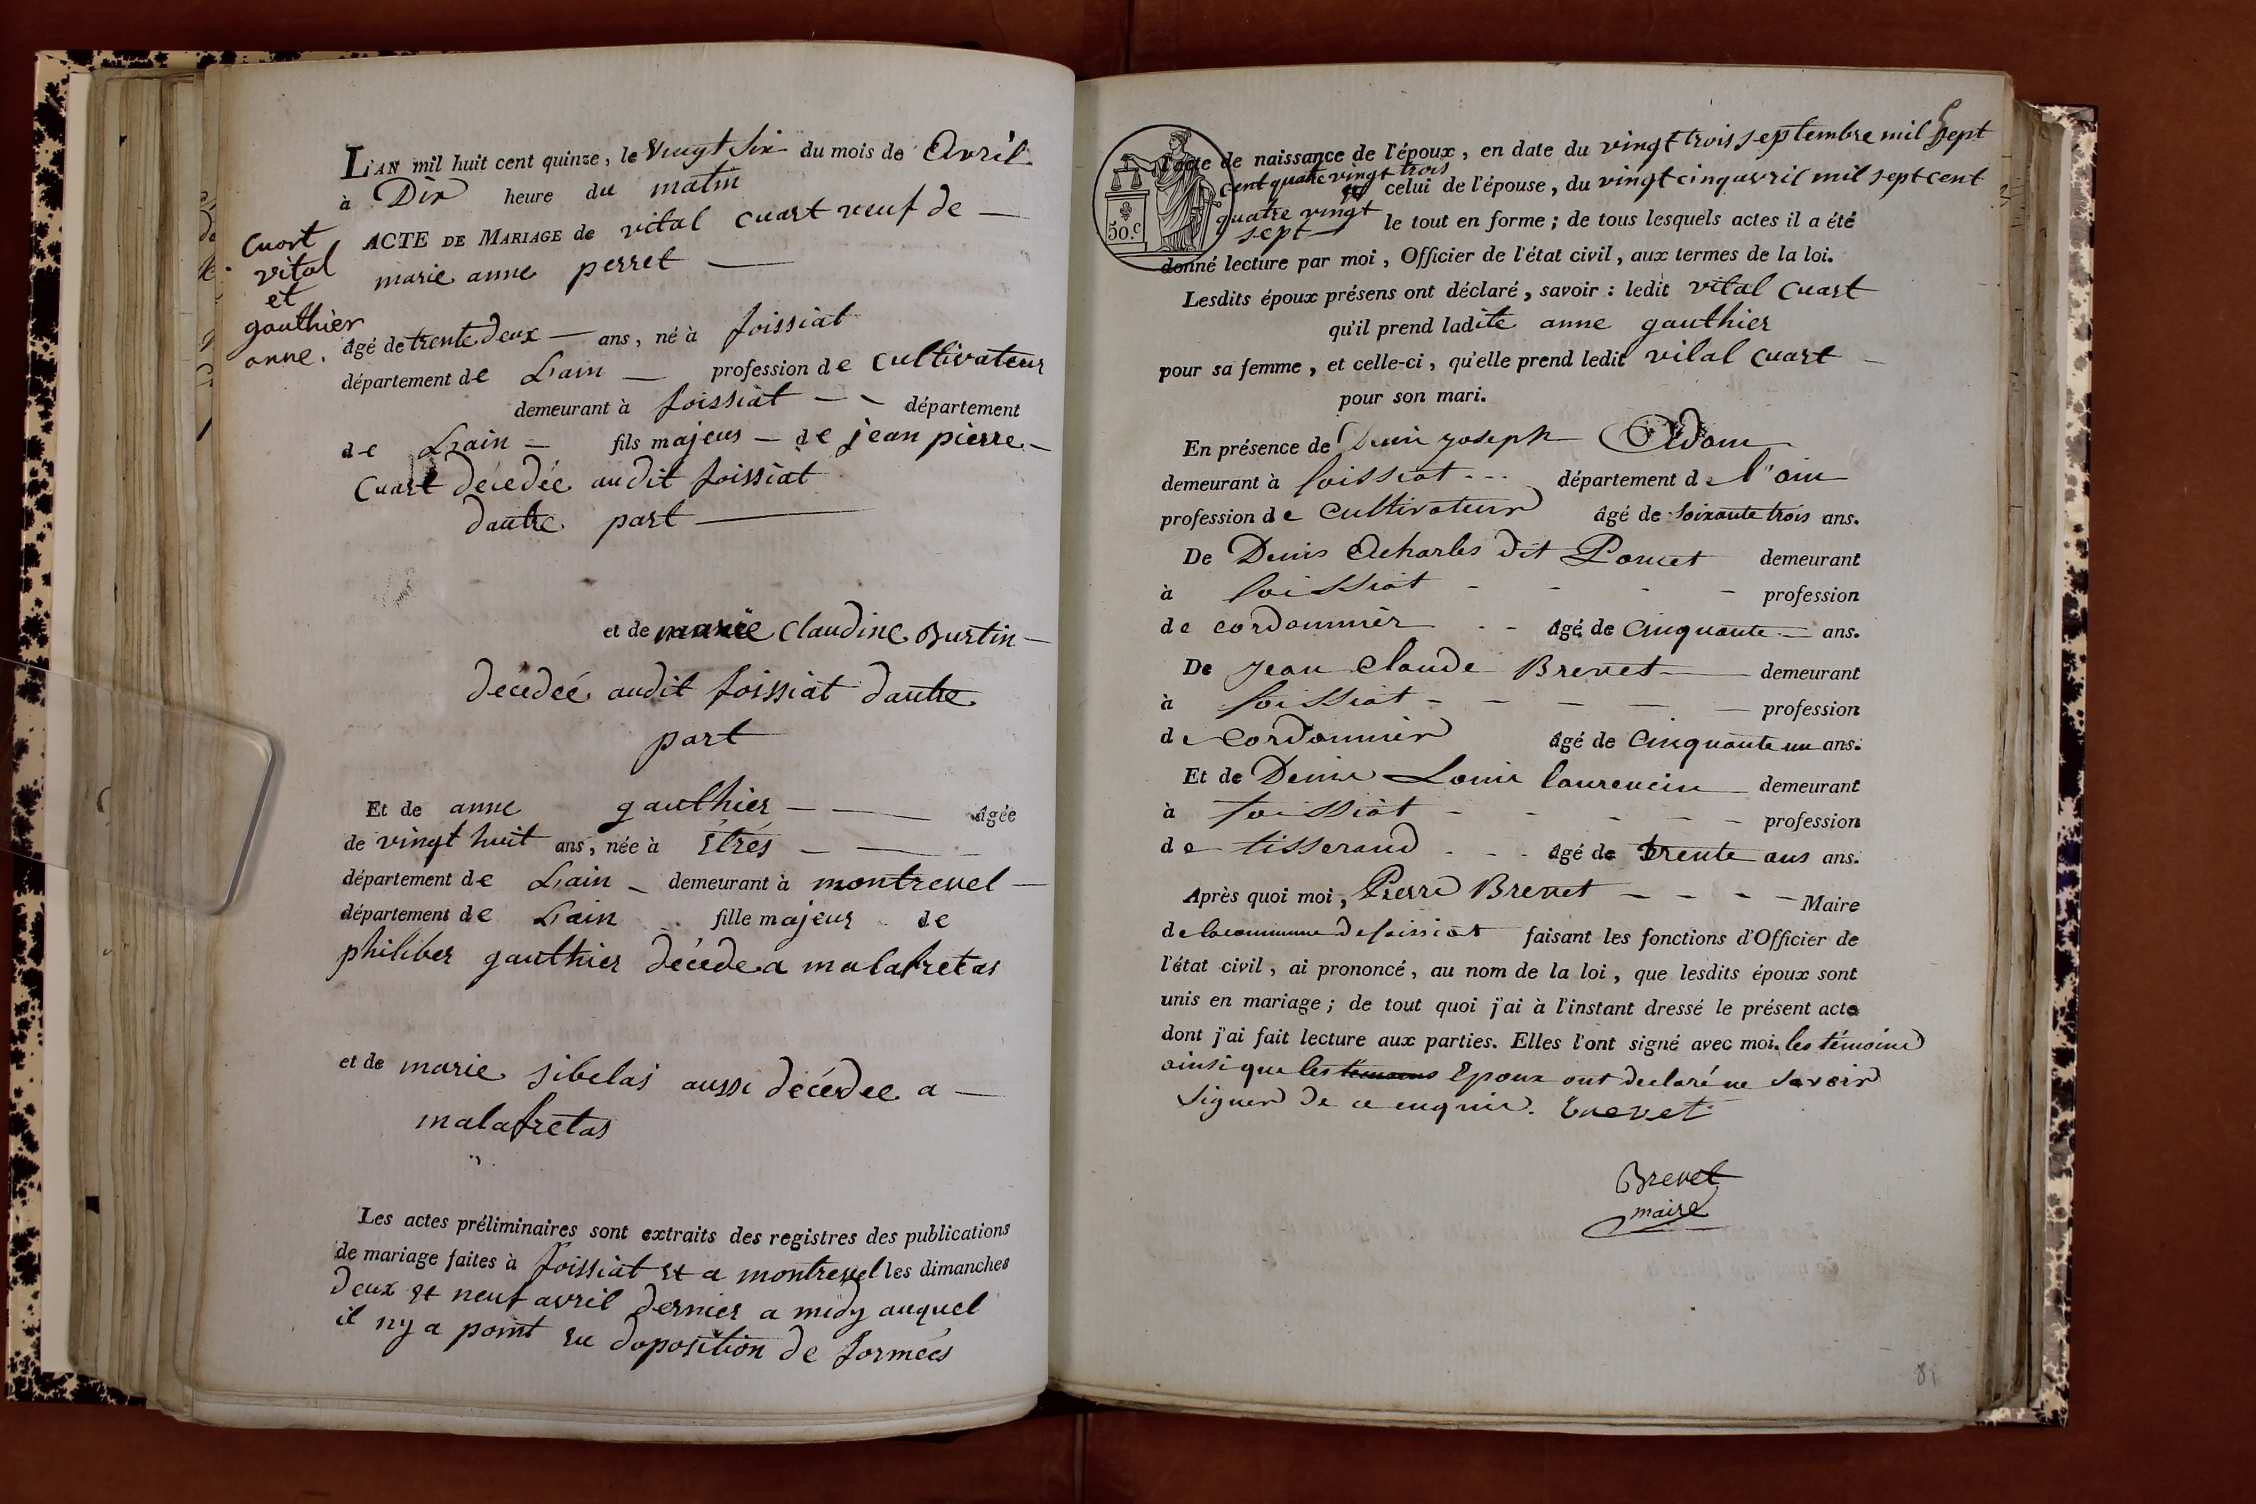 L'AN mil huit cent quinze, le Vingt Six du mois de Avril
à Dix heure du matin
ACTE DE MARIAGE de vital cuart veuf de
marie anne perret
Cuort
vital
et
gauthier
anne.
âgé de trente deux ans, né à foissiat
département de Lain profession de cultivateur
demeurant à foissiat département
de Lain fils majeur de jean pierre
Cuart décédée audit foissiat
dautre part
et de marie claudine Burtin
décédeé audit foissiat dautre
part
Et de anne gauthier âgée
de vingt huit ans, née à Étrés
département de Lain demeurant à montrevel
département de Lain fille majeur de
philiber gauthier décéde a malafretas
et de marie sibelas aussi décédee a
malafretas
Les actes préliminaires sont extraits des registres des publications
de mariage faites à foissiat et a montrevel les dimanches
deux et neuf avril dernier a midy auquel
il ny a point eu doposition de formées
l'acte de naissance de l'époux, en date du vingt trois septembre mil sept
cent quatre vingt trois et celui de l'épouse, du vingt cinq avril mil sept cent
quatre vingt sept le tout en forme ; de tous lesquels actes il a été
50.c
donné lecture par moi, Officier de l'état civil, aux termes de la loi.
Lesdits époux présens ont déclaré, savoir : ledit vital cuart
qu'il prend ladite anne gauthier
pour sa femme, et celle-ci, qu'elle prend ledit vital cuart
pour son mari.
En présence de Denis joseph Adam
demeurant à foissiat département de l'ain
profession de Cultivateur âgé de soixante trois ans.
De Denis Acharles dit Poncet demeurant
à foissiat profession
de cordonnier âgé de Cinquante ans.
De jean claude Brevet demeurant
à foissiat profession
de Cordonnier âgé de Cinquante un ans.
Et de Denis Louis laurencin demeurant
à foissiat profession
de tisserand âgé de trente ans ans.
Après quoi moi, Pierre Brevet Maire
de la commune de foissiat faisant les fonctions d'Officier de
l'état civil, ai prononcé, au nom de la loi, que lesdits époux sont
unis en mariage ; de tout quoi j'ai à l'instant dressé le présent acte
dont j'ai fait lecture aux parties. Elles l'ont signé avec moi. les témoins
ainsi que les témoins Epoux ont declaré ne savoir
signer de ce enquis. Brevet
Brevet
maire
81